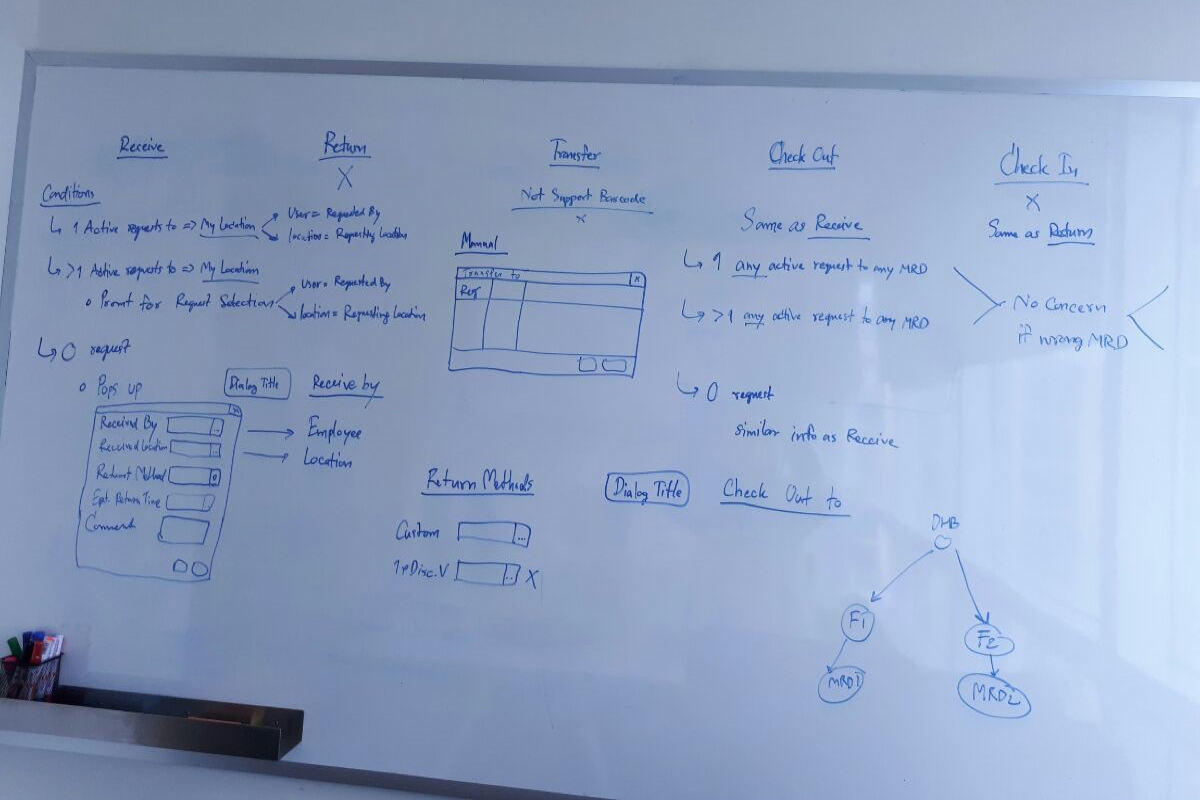 Receive
Conditions
↳ 1 Active requests to => My Location
User = Requested By
location = Requesting Location
↳ >1 Active requests to => My Location
o Promt for Request Selection
User = Requested By
location = Requesting Location
↳ 0 request
o Pops up
Dialog Title
Receive by
x
Received By ...
Received Location ...
Return Method
Ept. Return Time
Comments
Employee
Location
Return
X
Transfer
Not Support Barcode
x
Manual
Transfer to x
Return Methods
Custom ...
Disc.V .. X
Check Out
Same as Receive
↳ 1 any active request to any MRD
↳ >1 any active request to any MRD
↳ 0 request
similar info as Receive
Dialog Title
Check Out to
Check In
X
Same as Return
No Concern
if wrong MRD
F1
F2
MRD1
MRD2